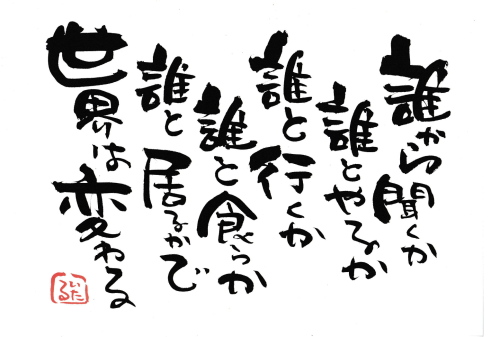 誰から聞くか
誰とやるか
誰と行くか
誰と食べるか
誰と居るかで
世界は変わる
いたる